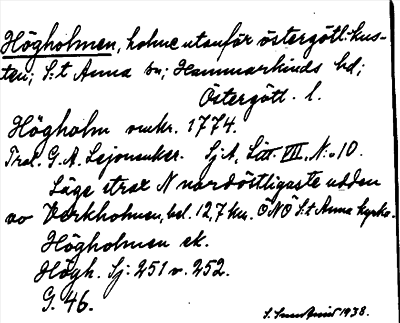 Högholmen, holme utanför östergötl. kus-
ten; S:t Anna sn; Hammarkinds hd;
Östergötl. l.
Högholm omkr. 1774.
Trat. G. A. Lejonanker. Sj. A, Litt. VII, N:o 10.
Läge strax N nordöstligaste udden
av Verkholmen, bel. 12,7 km. ÖNÖ S:t Anna kyrka.
Högholmen ek.
Högh. Sj: 251 v. 252.
G. 46.
1938.